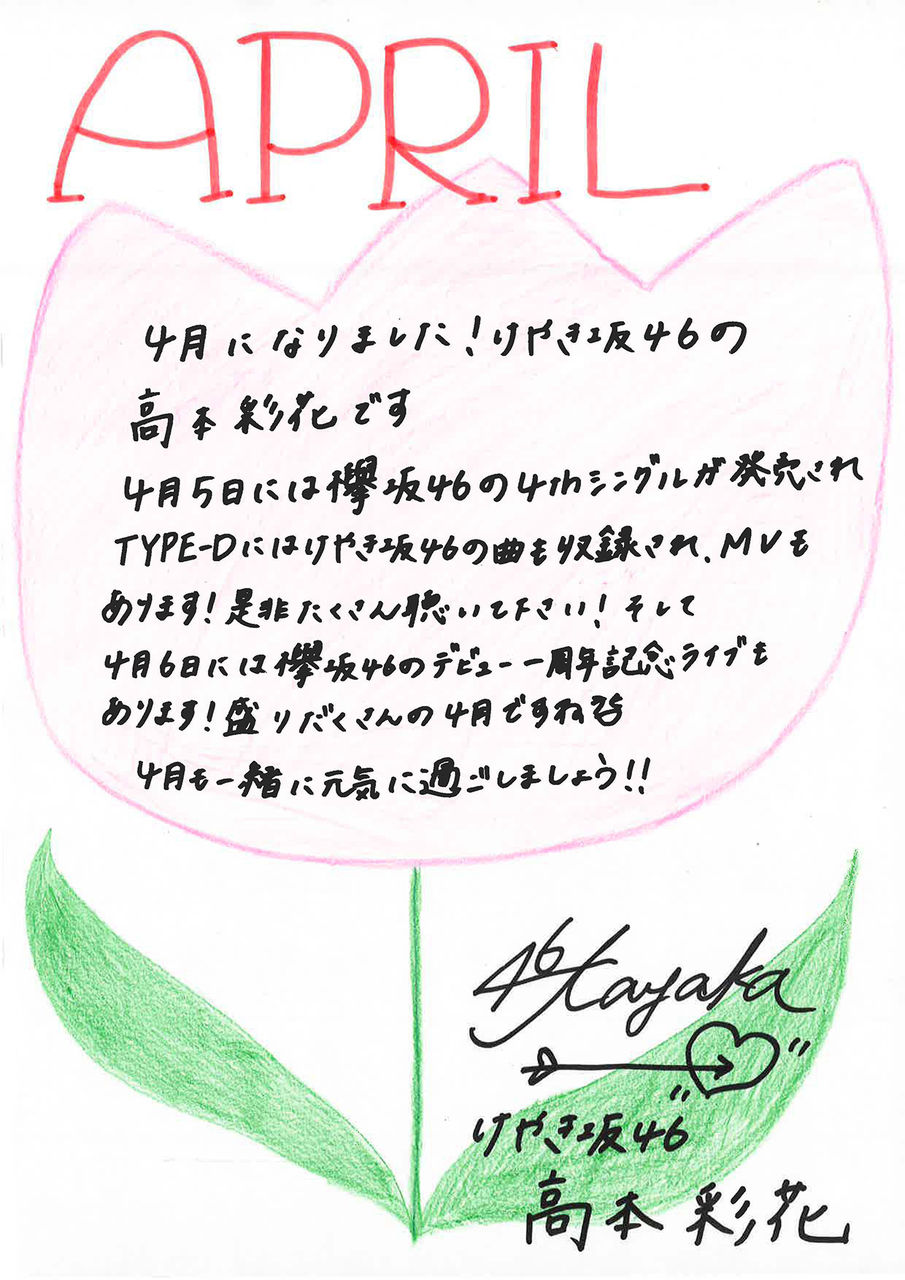 APRIL
4月になりました!けやき坂46の
高本彩花です
4月5日には欅坂46の4thシングルが発売され
TYPE-Dにはけやき坂46の曲も収録され、MVも
あります!是非たくさん聴いて下さい!そして
4月6日には欅坂46のデビュー一周年記念ライブも
あります!盛りだくさんの4月ですね
4月も一緒に元気に過ごしましょう!!
46 tayaka
けやき坂46
高本彩花